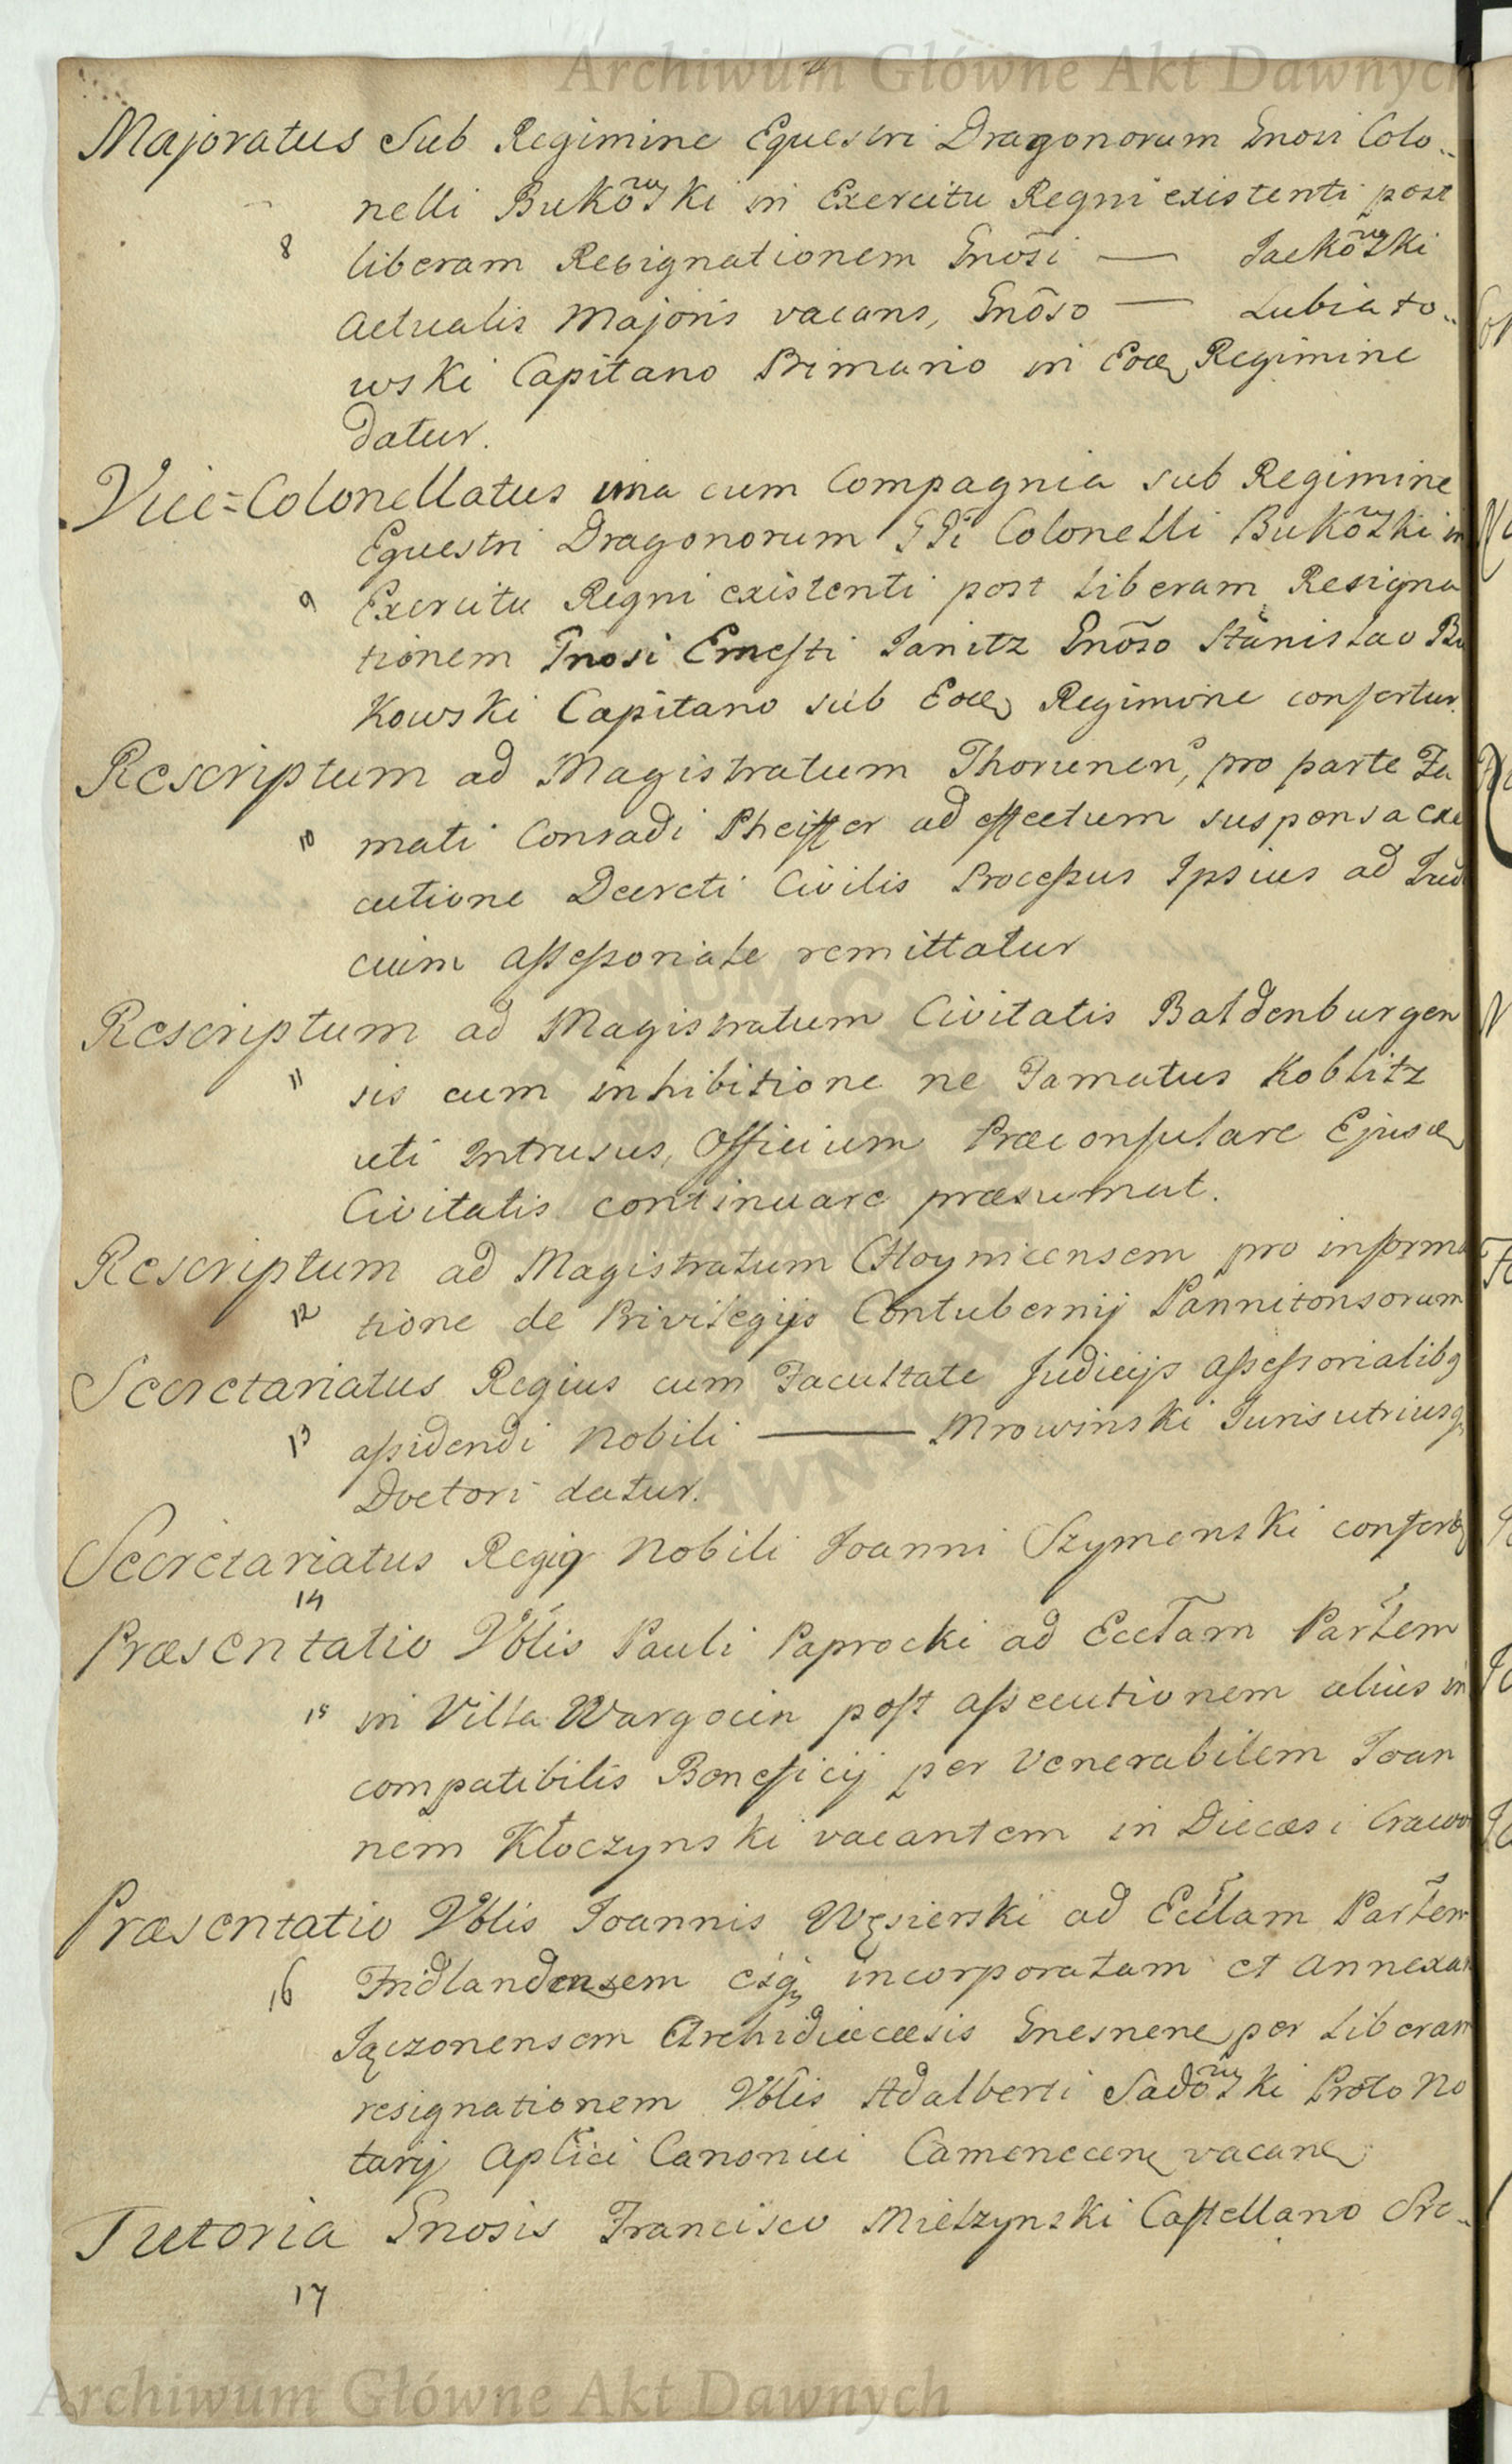 Archiwum Główne Akt Dawnych
Majoratus Sub Regimine Equestri Dragonorum Gnosi Colo-
nelli Bukõwski in Exercitu Regni existenti post
8 liberam Resignationem Gnõsi — Jackõwski
Actualis Majoris vacans, Gnõso — Lubiato-
wski Capitano Primario in Eod Regimine
datur.
Vice=Colonellatus una cum Compagnia sub Regimine
Equestri Dragonorum Colonelli Bukõwski in
9 Exercitu Regni existenti post liberam Resigna
tionem Gnosi Ernesti Janitz Gnõso Stanislao Bu
kowski Capitano sub Eod Regimine confertur.
Rescriptum ad Magistratum Thorunen, pro parte Fa
10 mati Conradi Pheiffer ad effectum suspensa exe
cutione Decreti Civilis Processus Ipsius ad Judi
cium Assessoriale remittatur
Rescriptum ad Magistratum Civitatis Baldenburgen
11 sis cum inhibitione ne Famatus Koblitz
uti Intrusus, Officium Præconsulare Ejusd
Civitatis continuare præsumat.
Rescriptum ad Magistratum Choynicensem pro informa
12 tione de Privilegijs Contubernij Pannitonsorum
Secretariatus Regius cum Facultate Judicijs assessorialibq
13 assidendi Nobili — Mrowinski Juris utriusq
Doctori datur.
Secretariatus Regiq Nobili Joanni Szymanski confertq
14
Præsentatio Vblis Pauli Paprocki ad Eccłam Parłem
15 in Villa Wargocin post assecutionem alius in
compatibilis Beneficij per Venerabilem Joan
nem Kłoczynski vacantem in Diecæsi Cracov
Præsentatio Vblis Joannis Węsierski ad Eccłam Parłem
16 Fridlandensem eiq incorporatam et annexam
Jączonensem Archidiœcæsis Gnesnen per liberam
resignationem Vblis Adalberti Sadõwski Proto No
tarij Aplici Canonici Camenecen vacan
Tutoria Gnosis Francisco Mielzynski Castellano Sre-
17
Archiwum Główne Akt Dawnych